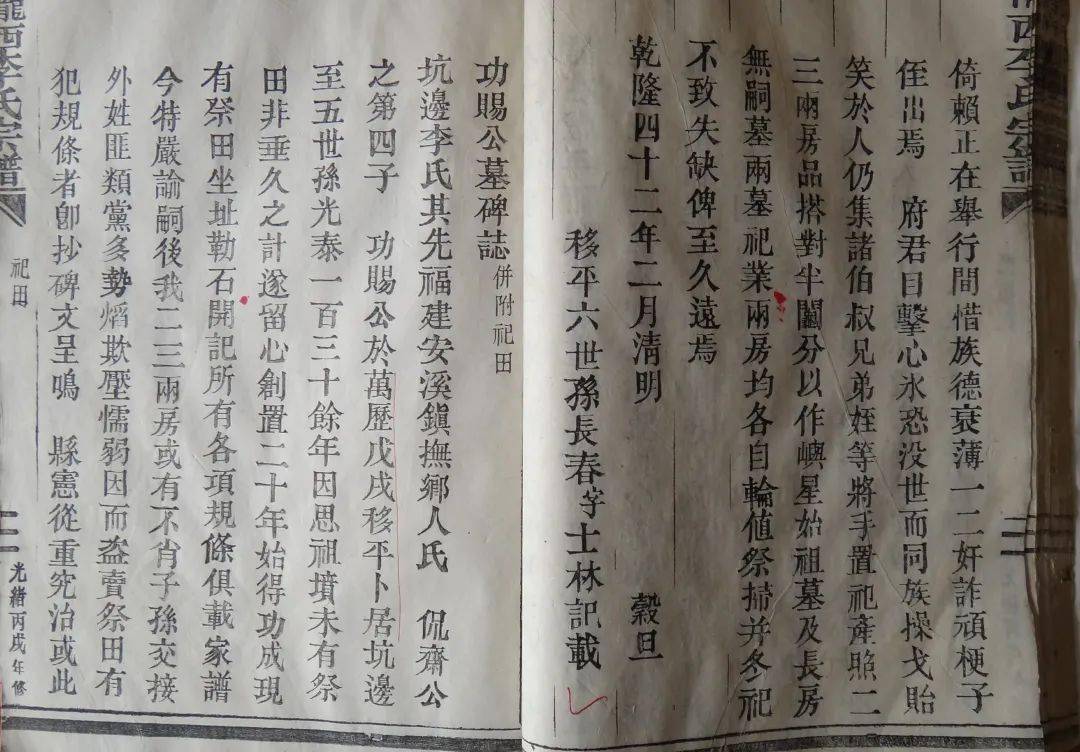 倚賴正在舉行間惜族德衰薄一二奸詐頑梗子
侄出焉　府君目擊心氷恐没世而同族操戈貽
笑於人仍集諸伯叔兄弟姪等將手置祀產照二
三兩房品搭對半鬮分以作嶼星始祖墓及長房
無嗣墓兩墓祀業兩房均各自輪值祭掃并冬祀
不致失缺俾至久遠焉
乾隆四十二年二月清明　穀旦
移平六世孫長春字士林記載
功賜公墓碑誌 併附祀田
坑邊李氏其先福建安溪鎮撫鄉人氏　侃齋公
之第四子　功賜公於萬歷戊戌移平卜居坑邊
至五世孫光泰一百三十餘年因思祖墳未有祭
田非垂久之計遂留心創置二十年始得功成現
有祭田坐址勒石開記所有各項規條俱載家譜
今特嚴諭嗣後我二三兩房或有不肖子孫交接
外姓匪類黨多勢熖欺壓懦弱因而盗賣祭田有
犯規條者卽抄碑文呈鳴　縣憲從重究治或此
隴西李氏宗譜
祀田
光緒丙戌年修